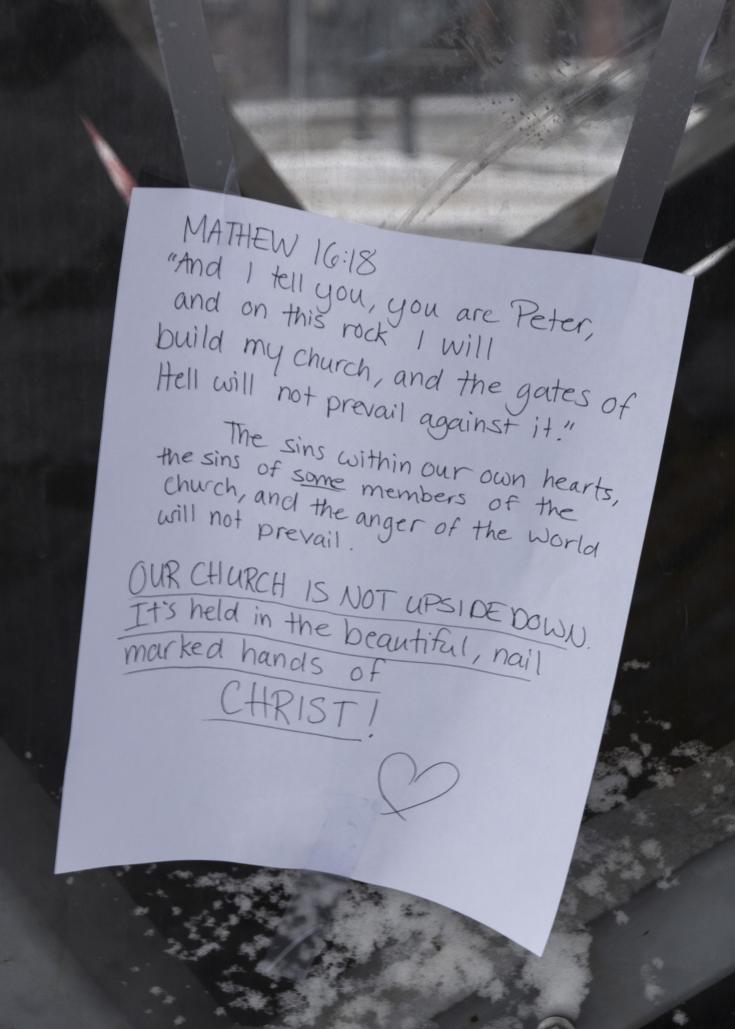 MATHEW 16:18
"And I tell you, you are Peter,
and on this rock I will
build my church, and the gates of
Hell will not prevail against it."
The sins within our own hearts,
the sins of some members of the
church, and the anger of the world
will not prevail.
OUR CHURCH IS NOT UPSIDE DOWN.
It's held in the beautiful, nail
marked hands of
CHRIST!